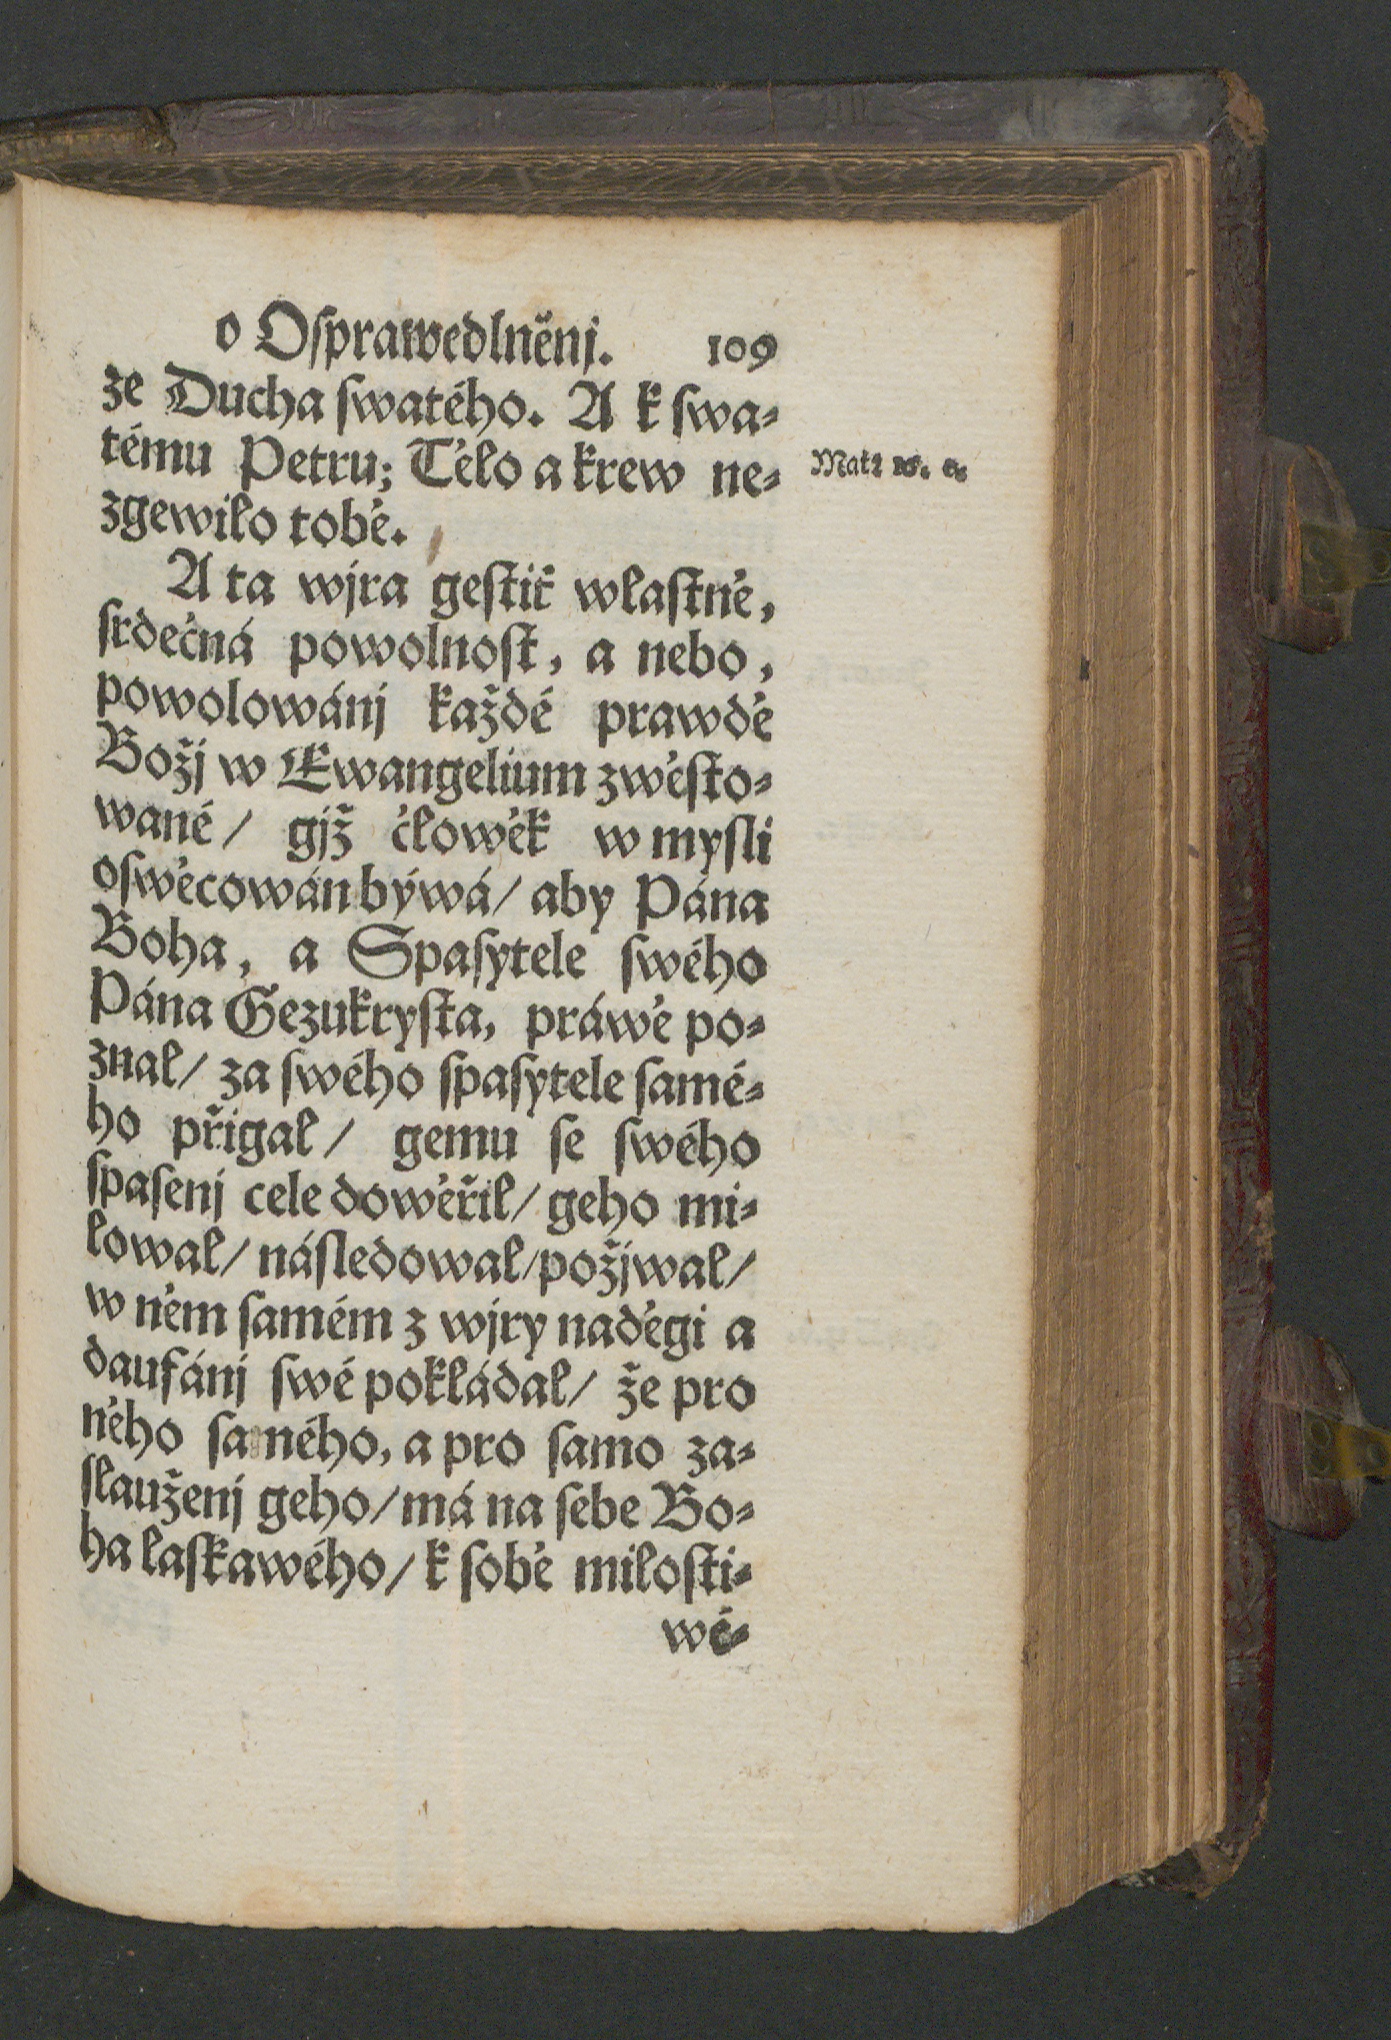 o Oſprawedlněnj. 109
ze Ducha ſwatého. A k ſwa-
tému Petru; Tělo a krew ne-
zgewilo tobě.
Mat: 16. c.
A ta wjra geſtiť wlaſtně,
ſrdečná powolnoſt, a nebo,
powolowánj každé prawdě
Božj w Ewangelium zwěſto-
wané / gjž člowěk w myſli
oſwěcowán býwá / aby Pána
Boha, a Spaſytele ſwého
Pána Gezukryſta, práwě po-
znal / za ſwého ſpaſytele ſamé-
ho přigal / gemu ſe ſwého
ſpaſenj cele dowěřil / geho mi-
lowal / náſledowal / požjwal /
w něm ſamém z wjry naděgi a
daufánj ſwé pokládal / že pro
něho ſamého, a pro ſamo za-
ſlauženj geho / má na ſebe Bo-
ha laſkawého / k ſobě miloſti-
wé-